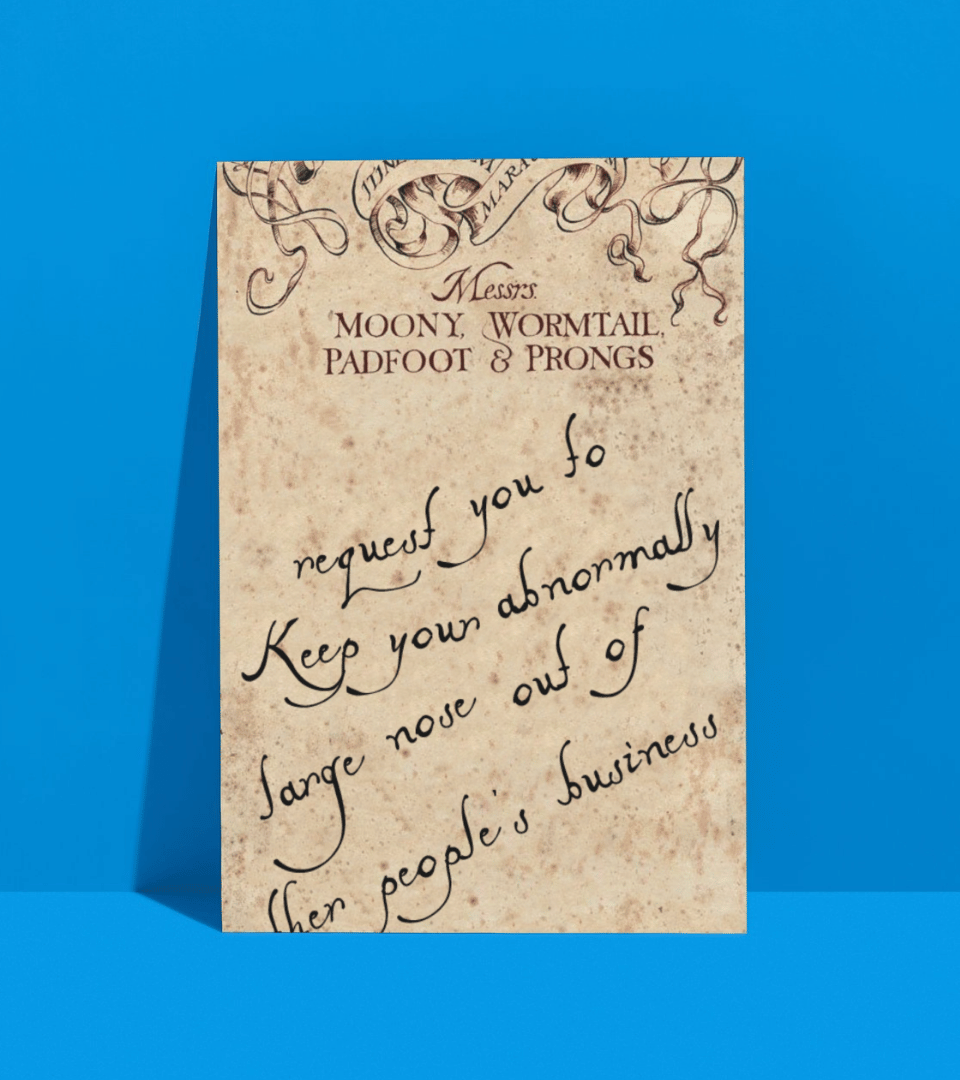 MARA
Messrs.
MOONY, WORMTAIL,
PADFOOT & PRONGS
request you to
Keep your abnormally
large nose out of
ther people's business